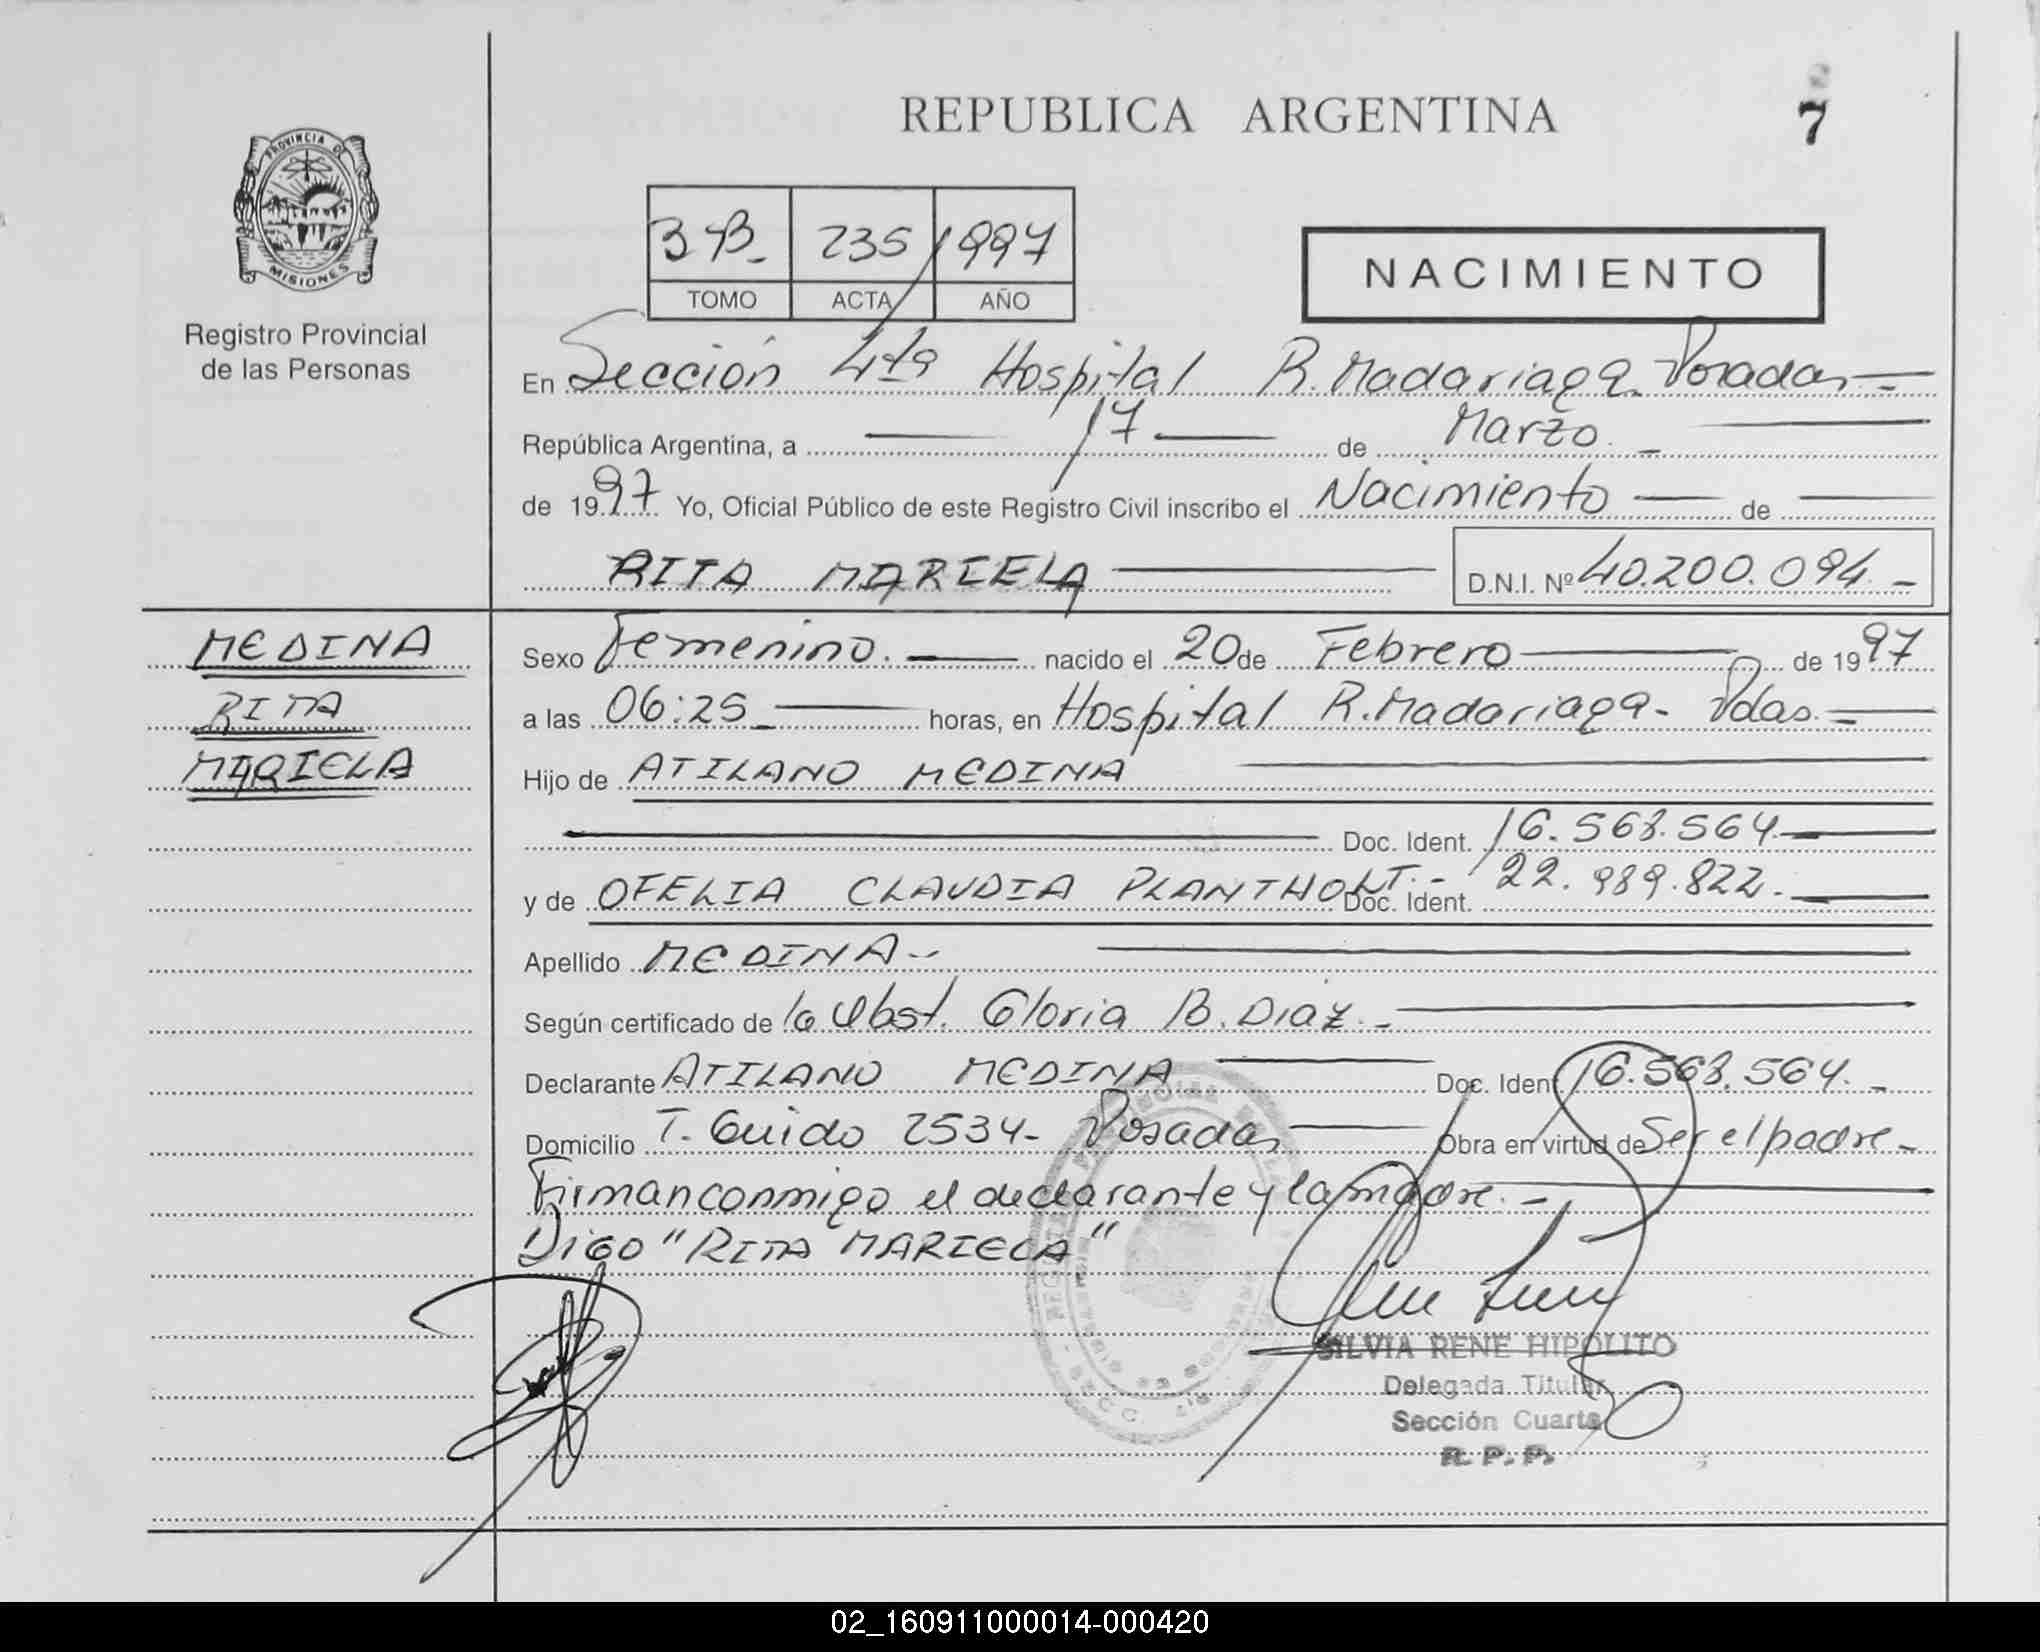 REPUBLICA ARGENTINA
7
PROVINCIA DE
MISIONES
Registro Provincial
de las Personas
3 B. 235 1997
TOMO ACTA AÑO
NACIMIENTO
En Sección 4ta Hospital R. Madariaga. Posadas
República Argentina, a 17 de Marzo.
de 1997 Yo, Oficial Público de este Registro Civil inscribo el Nacimiento de
RITA MARIELA D.N.I. Nº 40.200.094.-
MEDINA
RITA
MARIELA
Sexo Femenino. nacido el 20 de Febrero de 1997
a las 06:25 horas, en Hospital R. Madariaga - Pdas.
Hijo de ATILANO MEDINA
Doc. Ident. 16.568.564.
y de OFELIA CLAUDIA PLANTHOLT.- Doc. Ident. 22.989.822.
Apellido MEDINA -
Según certificado de la Obst. Gloria B. Diaz.-
Declarante ATILANO MEDINA Doc. Ident. 16.568.564.-
Domicilio T. Guido 2534- Posadas Obra en virtud de Ser el padre.-
Firman conmigo el declarante y la madre.-
Digo "RITA MARIELA"
SILVIA RENE HIPOLITO
Delegada Titular
Sección Cuarta
R. P. P.
02_160911000014-000420